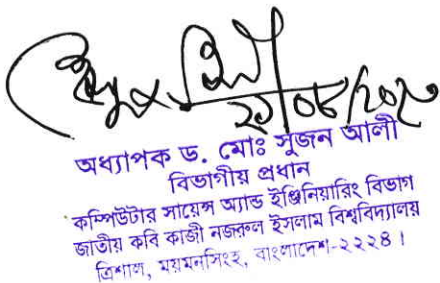 অধ্যাপক ড. মোঃ সুজন আলী
বিভাগীয় প্রধান
কম্পিউটার সায়েন্স অ্যান্ড ইঞ্জিনিয়ারিং বিভাগ
জাতীয় কবি কাজী নজরুল ইসলাম বিশ্ববিদ্যালয়
ত্রিশাল, ময়মনসিংহ, বাংলাদেশ-২২২৪।